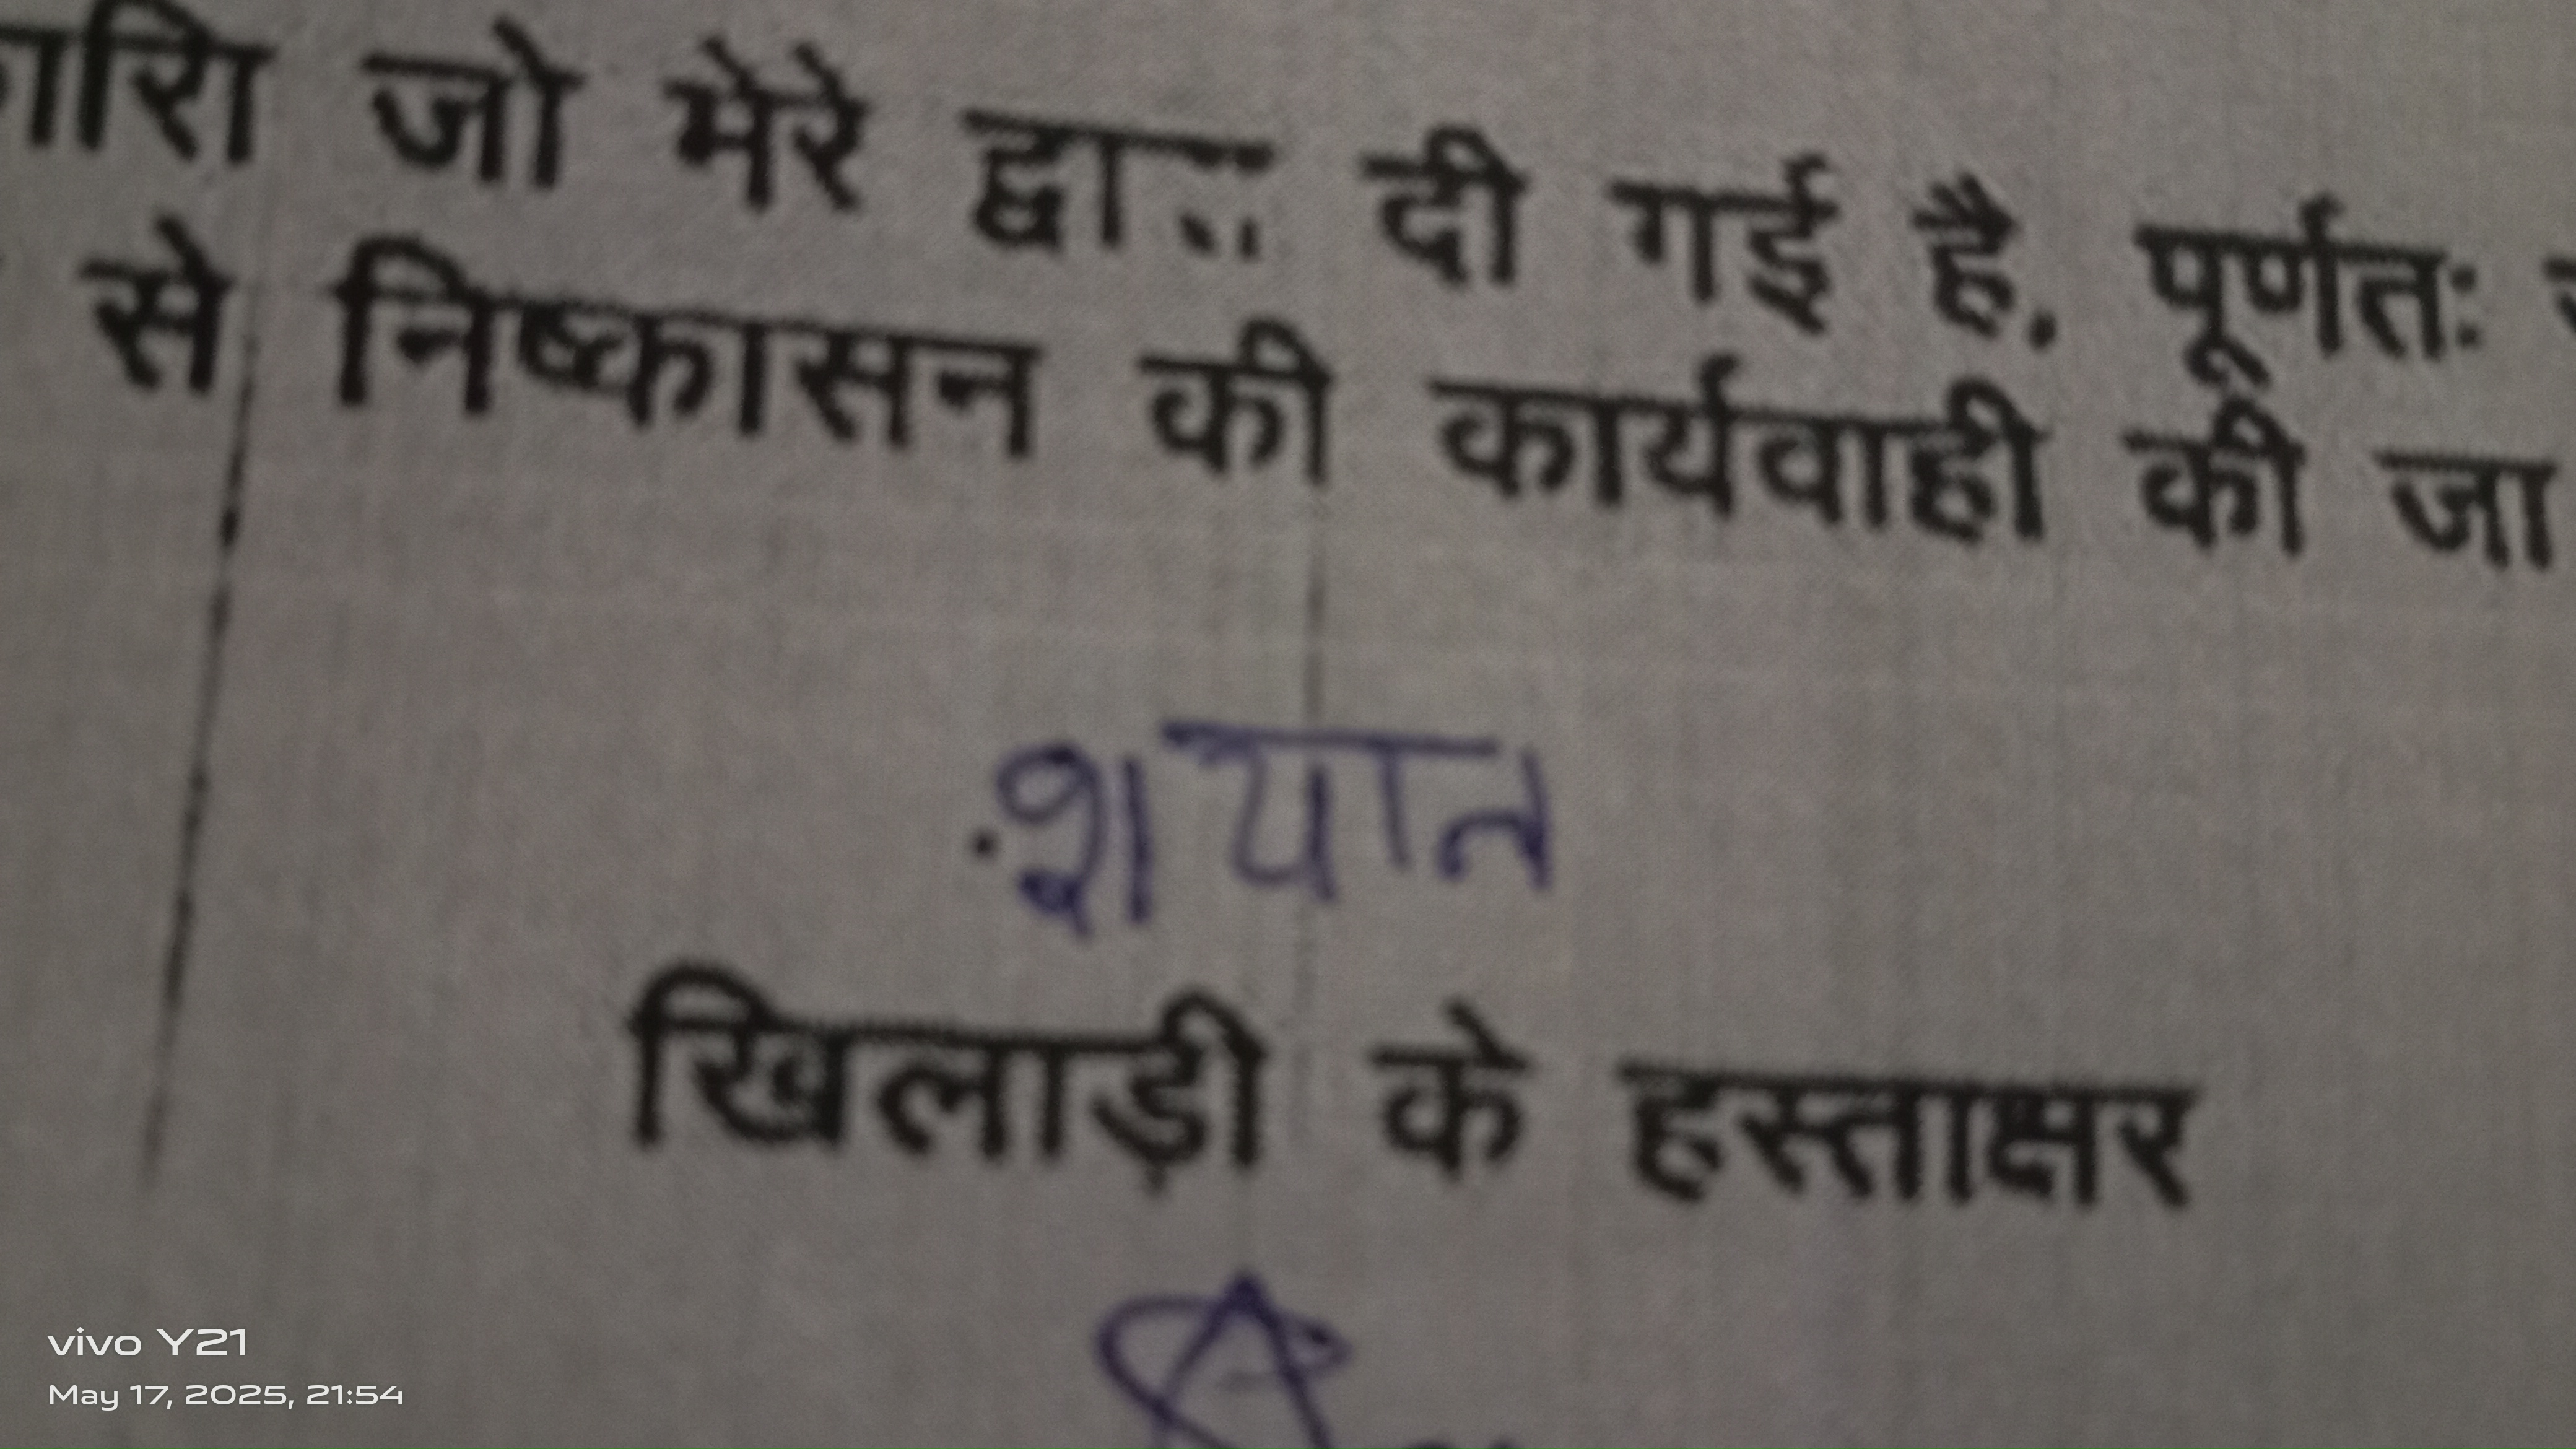 जो मेरे द्वारा दी गई है, पूर्णतः
से निष्कासन की कार्यवाही की जा
शयान
खिलाड़ी के हस्ताक्षर
vivo Y21
May 17, 2025, 21:54